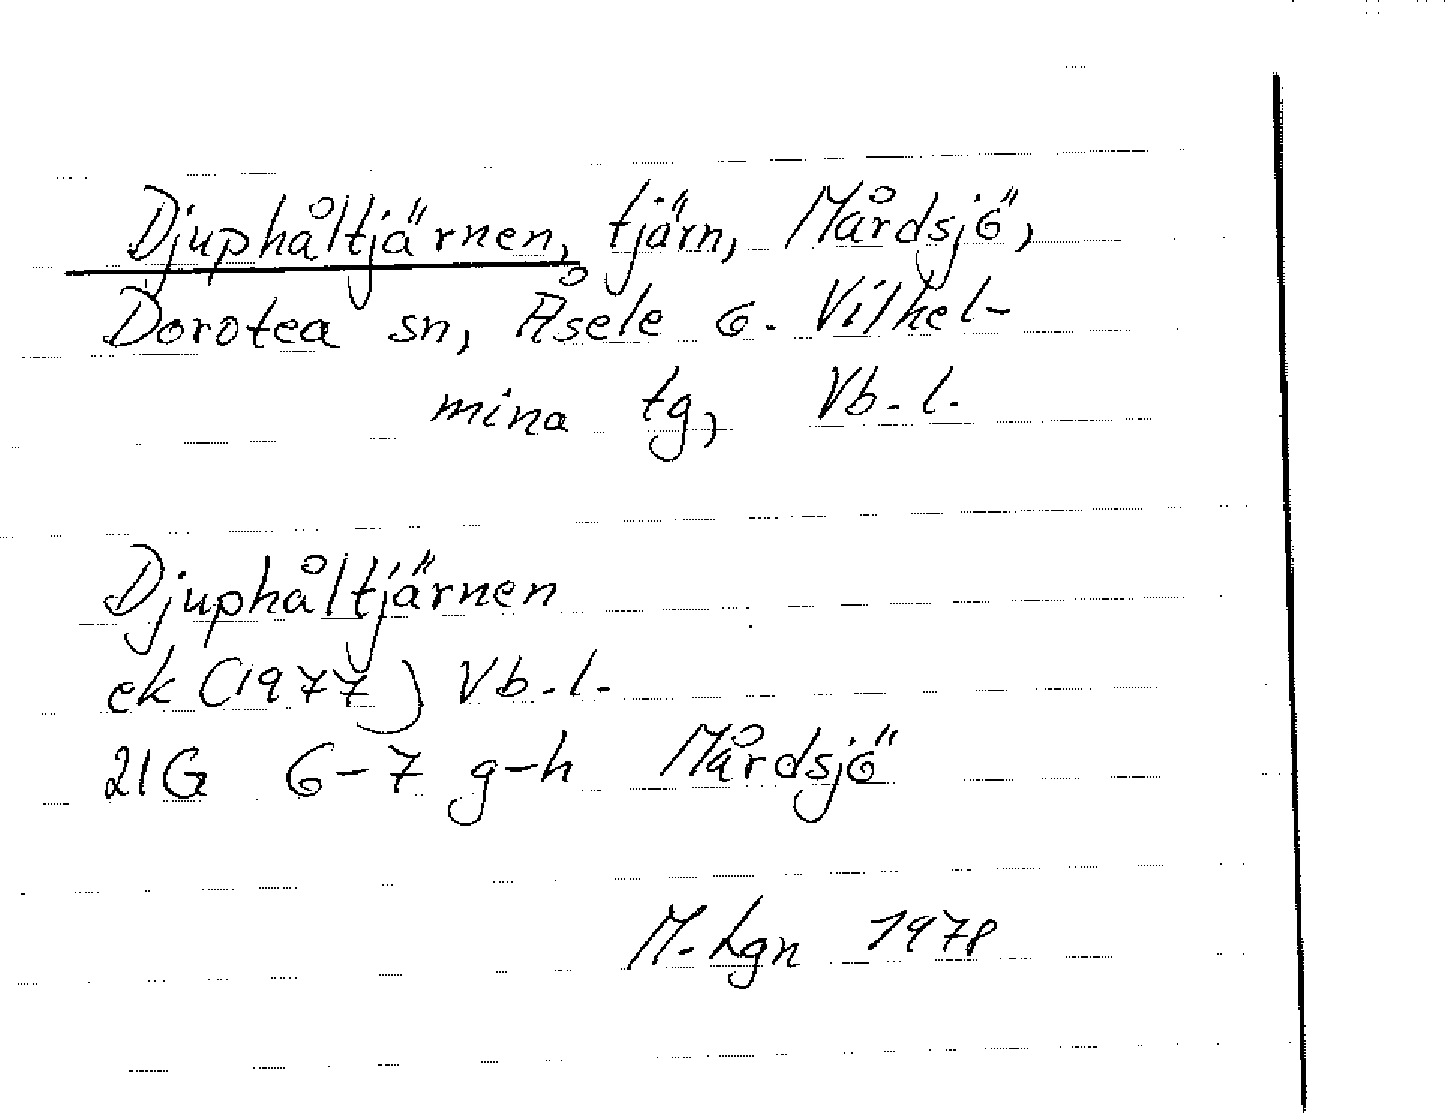 Djuphåltjärnen, tjärn, Mårdsjö,
Dorotea sn, Åsele o. Vilhel-
mina tg, Vb. l.
Djuphåltjärnen
ek (1977) Vb. l.
21G 6-7 g-h Mårdsjö
M. Lgn 1978